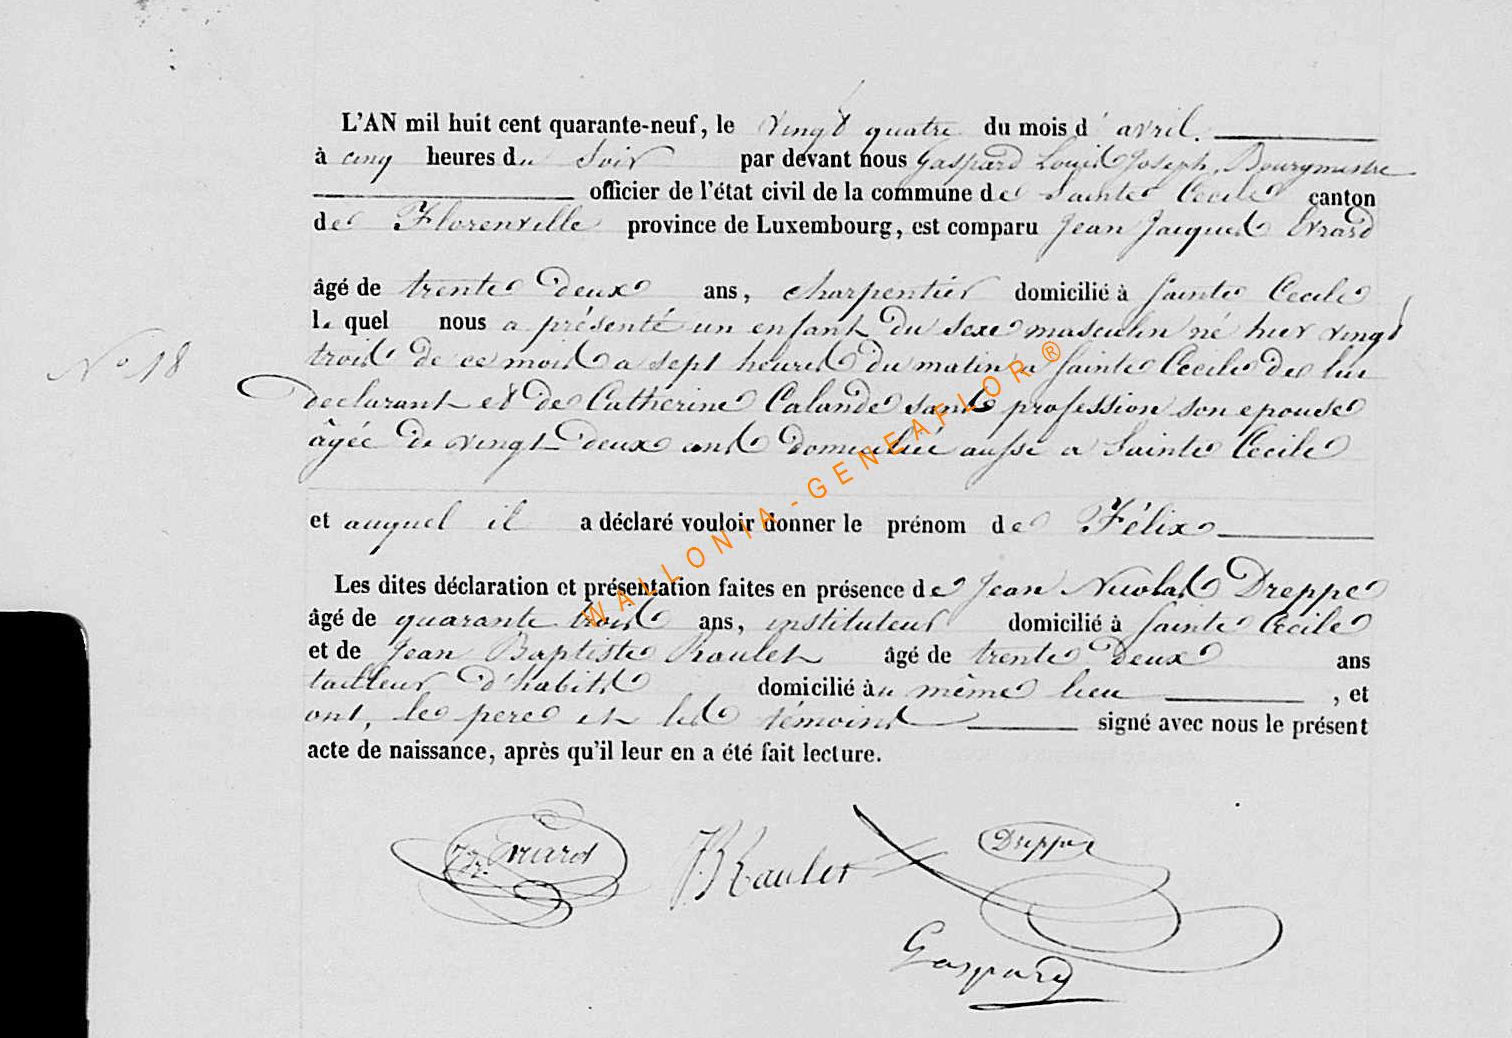 L'AN mil huit cent quarante-neuf, le vingt quatre du mois d'avril.
à cinq heures du soir par devant nous Gaspard Louis Joseph, Bourgmestre
officier de l'état civil de la commune de Sainte Cecile canton
de Florenville province de Luxembourg, est comparu Jean Jacques Evrard
âgé de trente deux ans, charpentier domicilié à Sainte Cecile
le quel nous a présenté un enfant du sexe masculin né hier vingt
N° 18
trois de ce mois a sept heures du matin a Sainte Cecile de lui
declarant et de Catherine Calande sans profession son epouse
âgée de vingt deux ans domiciliée aussi a Sainte Cecile
et auquel il a déclaré vouloir donner le prénom de Félix
Les dites déclaration et présentation faites en présence de Jean Nicolas Dreppe
âgé de quarante trois ans, instituteur domicilié à Sainte Cecile
et de Jean Baptiste Raulet âgé de trente deux ans
tailleur d'habits domicilié au même lieu , et
ont, le pere et les témoins signé avec nous le présent
acte de naissance, après qu'il leur en a été fait lecture.
JJ. Evrard JB Raulet Dreppe
Gaspard
WALLONIA-GENEAFLOR®